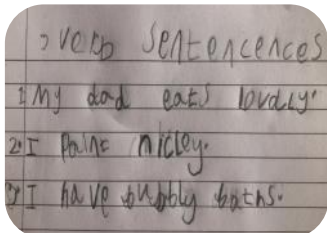 verb sentencences
1. My dad eats loudly.
2. I paint nicley.
3. I have bubbly baths.